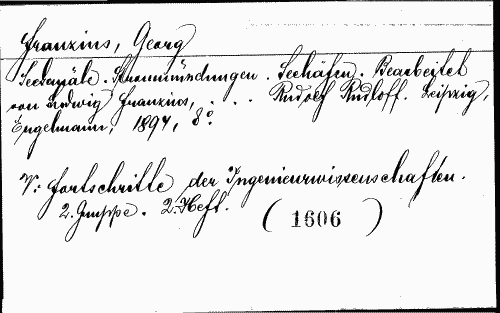 Franzius, Georg
Seekanäle. Strommündungen. Seehäfen. Bearbeitet
von Ludwig Franzius, . . . Rudolf Rudloff. Leipzig,
Engelmann, 1894, 8°
V: Fortschritte der Ingenieurwissenschaften.
2. Gruppe. 2. Heft. (1606)